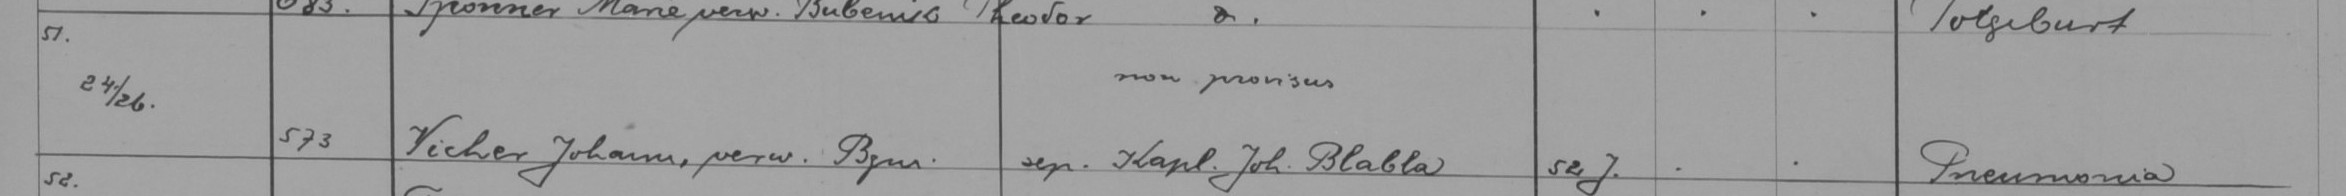 Marie verw. Theodor . . . Totgeburt
51.
24/26.
non provisus
573 Vicher Johann, verw. Bgm. sep. Kapl. Joh. Blabla 52 J. . . Pneumonia
52.